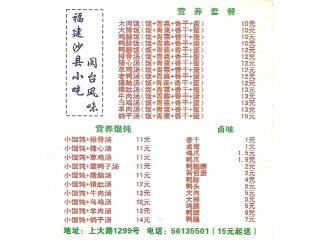 福建沙县小吃
闽台风味
营养套餐
大肉饭(饭+青菜+香干+蛋) 10元
大排饭(饭+青菜+香干+蛋) 10元
鸡腿饭(饭+青菜+香干+蛋) 10元
鸭腿饭(饭+青菜+香干+蛋)
(饭+青菜+香干+蛋)
排骨汤(饭+青菜+香干+蛋) 12元
猪心汤(饭+青菜+香干+蛋) 12元
草鸡汤(饭+青菜+香干+蛋) 12元
老鸭汤(饭+青菜+香干+蛋) 12元
猪脑汤(饭+青菜+香干+蛋) 12元
猪肚汤(饭+青菜+香干+蛋)
牛肉汤(饭+青菜+香干+蛋)
乌鸡汤(饭+青菜+香干+蛋)
羊肉汤(饭+青菜+香干+蛋)
鸽子汤(饭+青菜+香干+蛋) 15元
营养馄饨
小馄饨+排骨汤 11元
小馄饨+猪心汤 11元
小馄饨+草鸡汤 11元
小馄饨+草鸭子汤 11元
小馄饨+猪脑汤 11元
小馄饨+猪肚汤 11元
小馄饨+牛肉汤 12元
小馄饨+乌鸡汤 12元
小馄饨+羊肉汤 12元
小馄饨+鸽子汤 14元
卤味
香干 1元
卤蛋 1元
鸡爪 1.5元
鸭爪 1.5元
鸭翅膀 2元
荷包蛋 2元
鸭胗 4元
鸭头
大肉 5元
大排 5元
鸡腿
鸭腿 6元
7元
地址:上大路1299号 电话:56135501(15元起送)